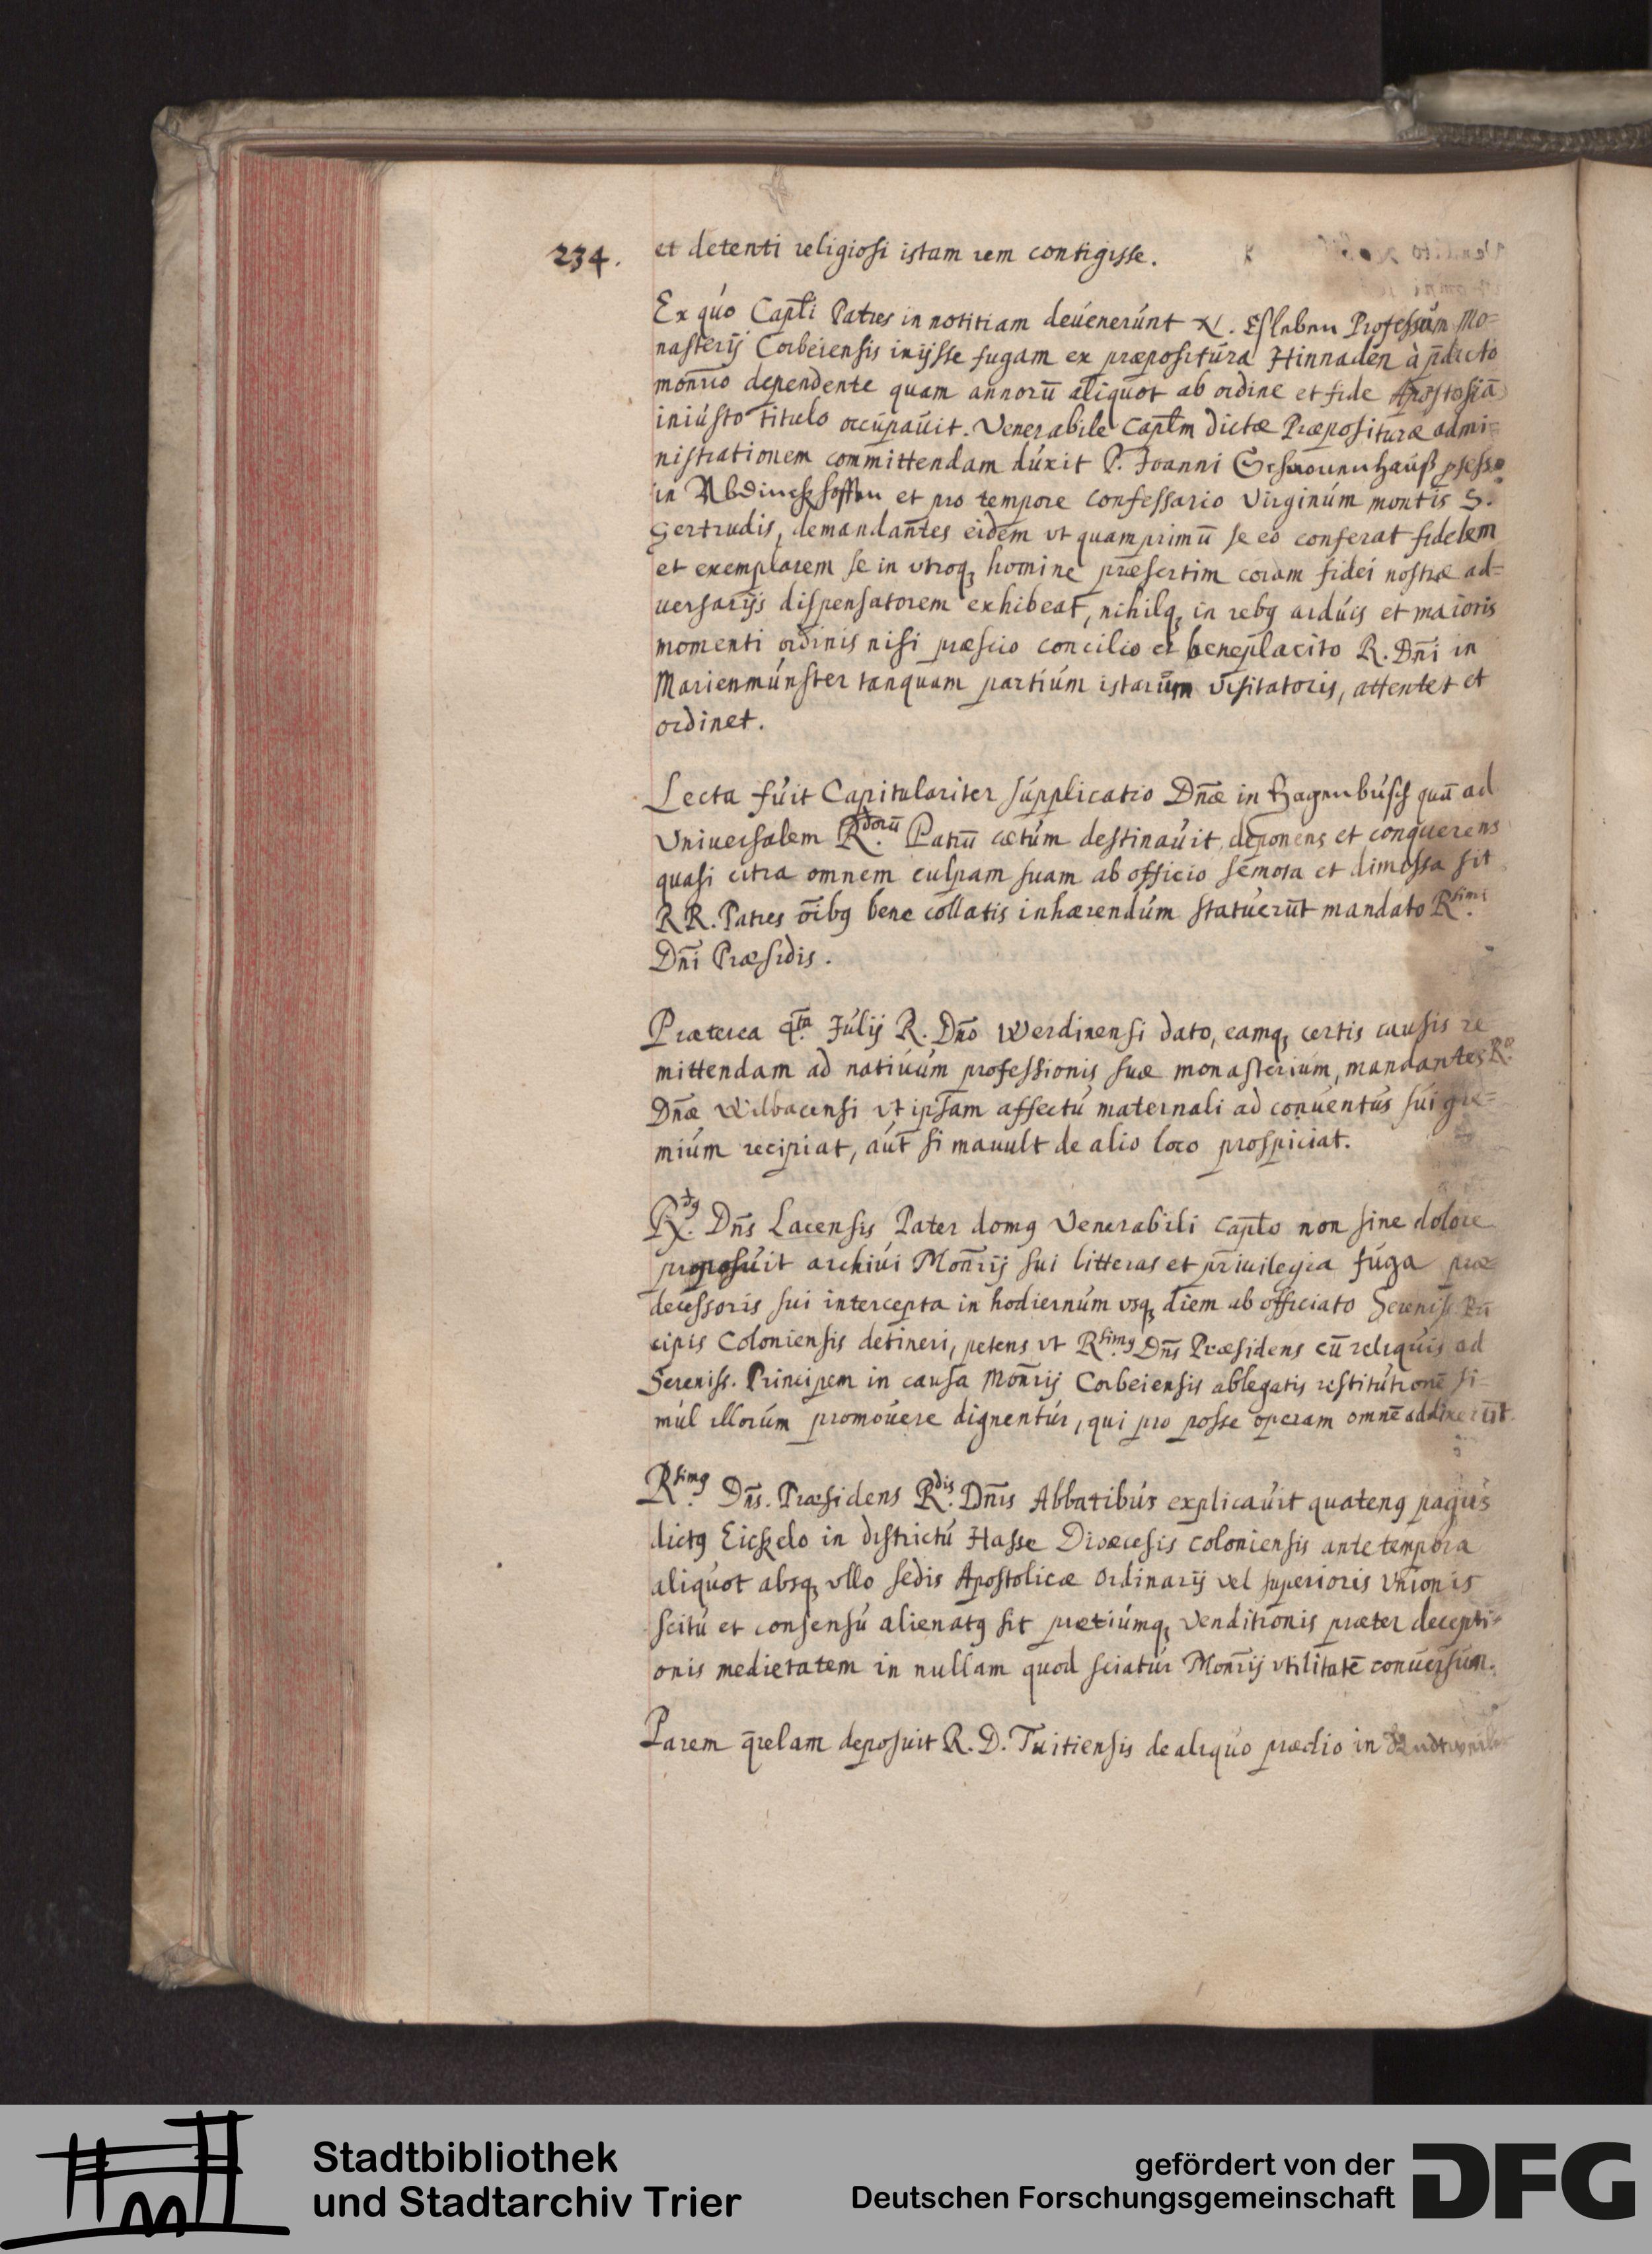 234.
et detenti religiosi istam rem contigisse.
Ex quo Capl̄i Patres in notitiam deuenerunt N. Esleben Professum Mo=
nasterij Corbeiensis inijsse fugam ex præpositura Hinnaden à p̄dicto
monr̄io dependente quam annorū aliquot ab ordine et fide Apostosiā
iniusto titulo occupauit. Venerabile Capl̄m dictæ Præposituræ admi=
nistrationem committendam duxit P. Joanni
in Abdinckhoffen et pro tempore confessario Virginum montis S.
Gertrudis, demandantes eidem vt quamprimū se eo conferat fidelem
et exemplarem se in vtroq, homine præsertim coram fidei nostræ ad=
uersarijs dispensatorem exhibeat, nihilq, in rebꝰ arduis et maioris
momenti ordinis nisi præscio concilio et beneplacito R. Dn̄i in
Marienmunster tanquam partium istarum visitatoris, attentet et
ordinet.
Lecta fuit Capitulariter supplicatio Dn̄æ in Hagenbusch quā ad
Vniuersalem R.dorū Patrū cætum destinauit, deponens et conquerens
quasi citra omnem culpam suam ab officio semota et dimossa sit
RR. Patres oībꝰ bene collatis inhærendum statuerūt mandato R.simi
Dn̄i Præsidis.
Præterea q.ta Julij R. Dn̄o Werdinensi dato, eamq, certis causis re
mittendam ad natiuum professionis suæ monasterium, mandantes R.
Dn̄æ Wilbacensi vt ipsam affectu maternali ad conuentus sui gre=
mium recipiat, aut si mauult de alio loco prospiciat.
R.dꝰ Dn̄s Lacensis Pater domꝰ Venerabili Capl̄o non sine dolore
proposuit archiui Monr̄ij sui litteras et priuilegia fuga præ
decessoris sui intercepta in hodiernum vsq, diem ab officiato Sereniss. Prī
cipis Coloniensis detineri, petens vt R.simꝰ Dn̄s Præsidens cū reliquis ad
Sereniss. Principem in causa Monr̄ij Corbeiensis ablegatis restitutionē si=
mul illorum promouere dignentur, qui pro posse operam omnē addixerūt.
R.simꝰ Dn̄s. Præsidens R.dis Dn̄is Abbatibus explicauit quatenꝰ pagus
dictꝰ Eickelo in districtu Hasse Dioecesis Coloniensis ante tempora
aliquot absq, vllo sedis Apostolicæ Ordinarij vel superioris Vnionis
scitu et consensu alienatꝰ sit pretiumq, Venditionis præter decepti=
onis medietatem in nullam quod sciatur Monr̄ij vtilitatē conuersum.
Parem q̄relam deposuit R. D. Tuitiensis de aliquo prædio in
Stadtbibliothek
und Stadtarchiv Trier
gefördert von der
Deutschen Forschungsgemeinschaft
DFG